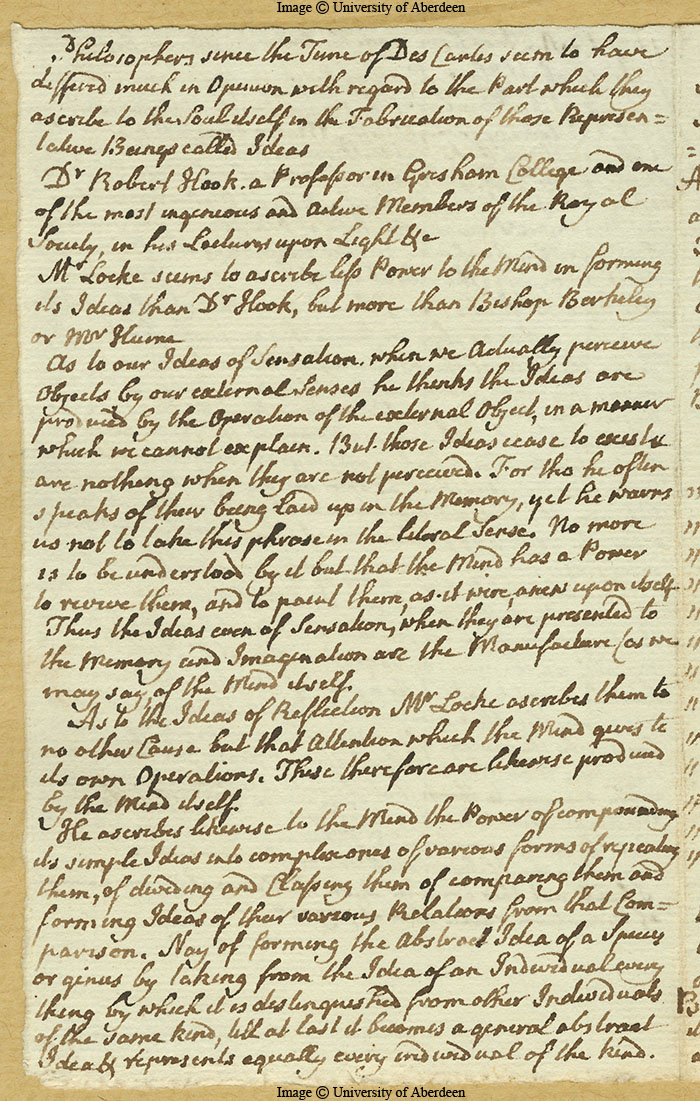 Image © University of Aberdeen
Philosophers since the Time of Des Cartes seem to have
differed much in Opinion with regard to the Part which they
ascribe to the Soul itself in the Fabrication of those Represen=
tative Beings called Ideas
Dr Robert Hook. a Professor in Gresham College and one
of the most ingenious and active Members of the Royal
Society, in his Lectures upon Light &c
Mr Locke seems to ascribe less Power to the Mind in forming
its Ideas than Dr Hook, but more than Bishop Berkeley
or Mr Hume
As to our Ideas of Sensation. when we actually perceive
Objects by our external Senses he thinks the Ideas are
produced by the Operation of the external Object, in a manner
which we cannot explain. But those Ideas cease to exist &
are nothing when they are not perceived. For tho he often
speaks of their being laid up in the Memory, yet he warns
us not to take this phrase in the literal Sense. No more
is to be understood by it but that the Mind has a Power
to revive them, and to paint them, as it were, anew upon itself
Thus the Ideas even of Sensation, when they are presented to
the Memory and Imagination are the Manufacture (as we
may say of the Mind itself.
As to the Ideas of Reflection Mr Locke ascribes them to
no other Cause but that Attention which the Mind gives to
its own Operations. These therefore are likewise produced
by the Mind itself.
He ascribes likewise to the Mind the Power of compounding
its simple Ideas into complex ones of various forms of repeating
them, of dividing and Classing them of comparing them and
forming Ideas of their various Relations from that Com=
parison. Nay of forming the Abstract Idea of a Species
or genus by taking from the Idea of an Individual every
thing by which it is distinguished from other Individuals
of the same kind, till at last it becomes a general abstract
Idea & represents equally every individual of the kind.
Image © University of Aberdeen